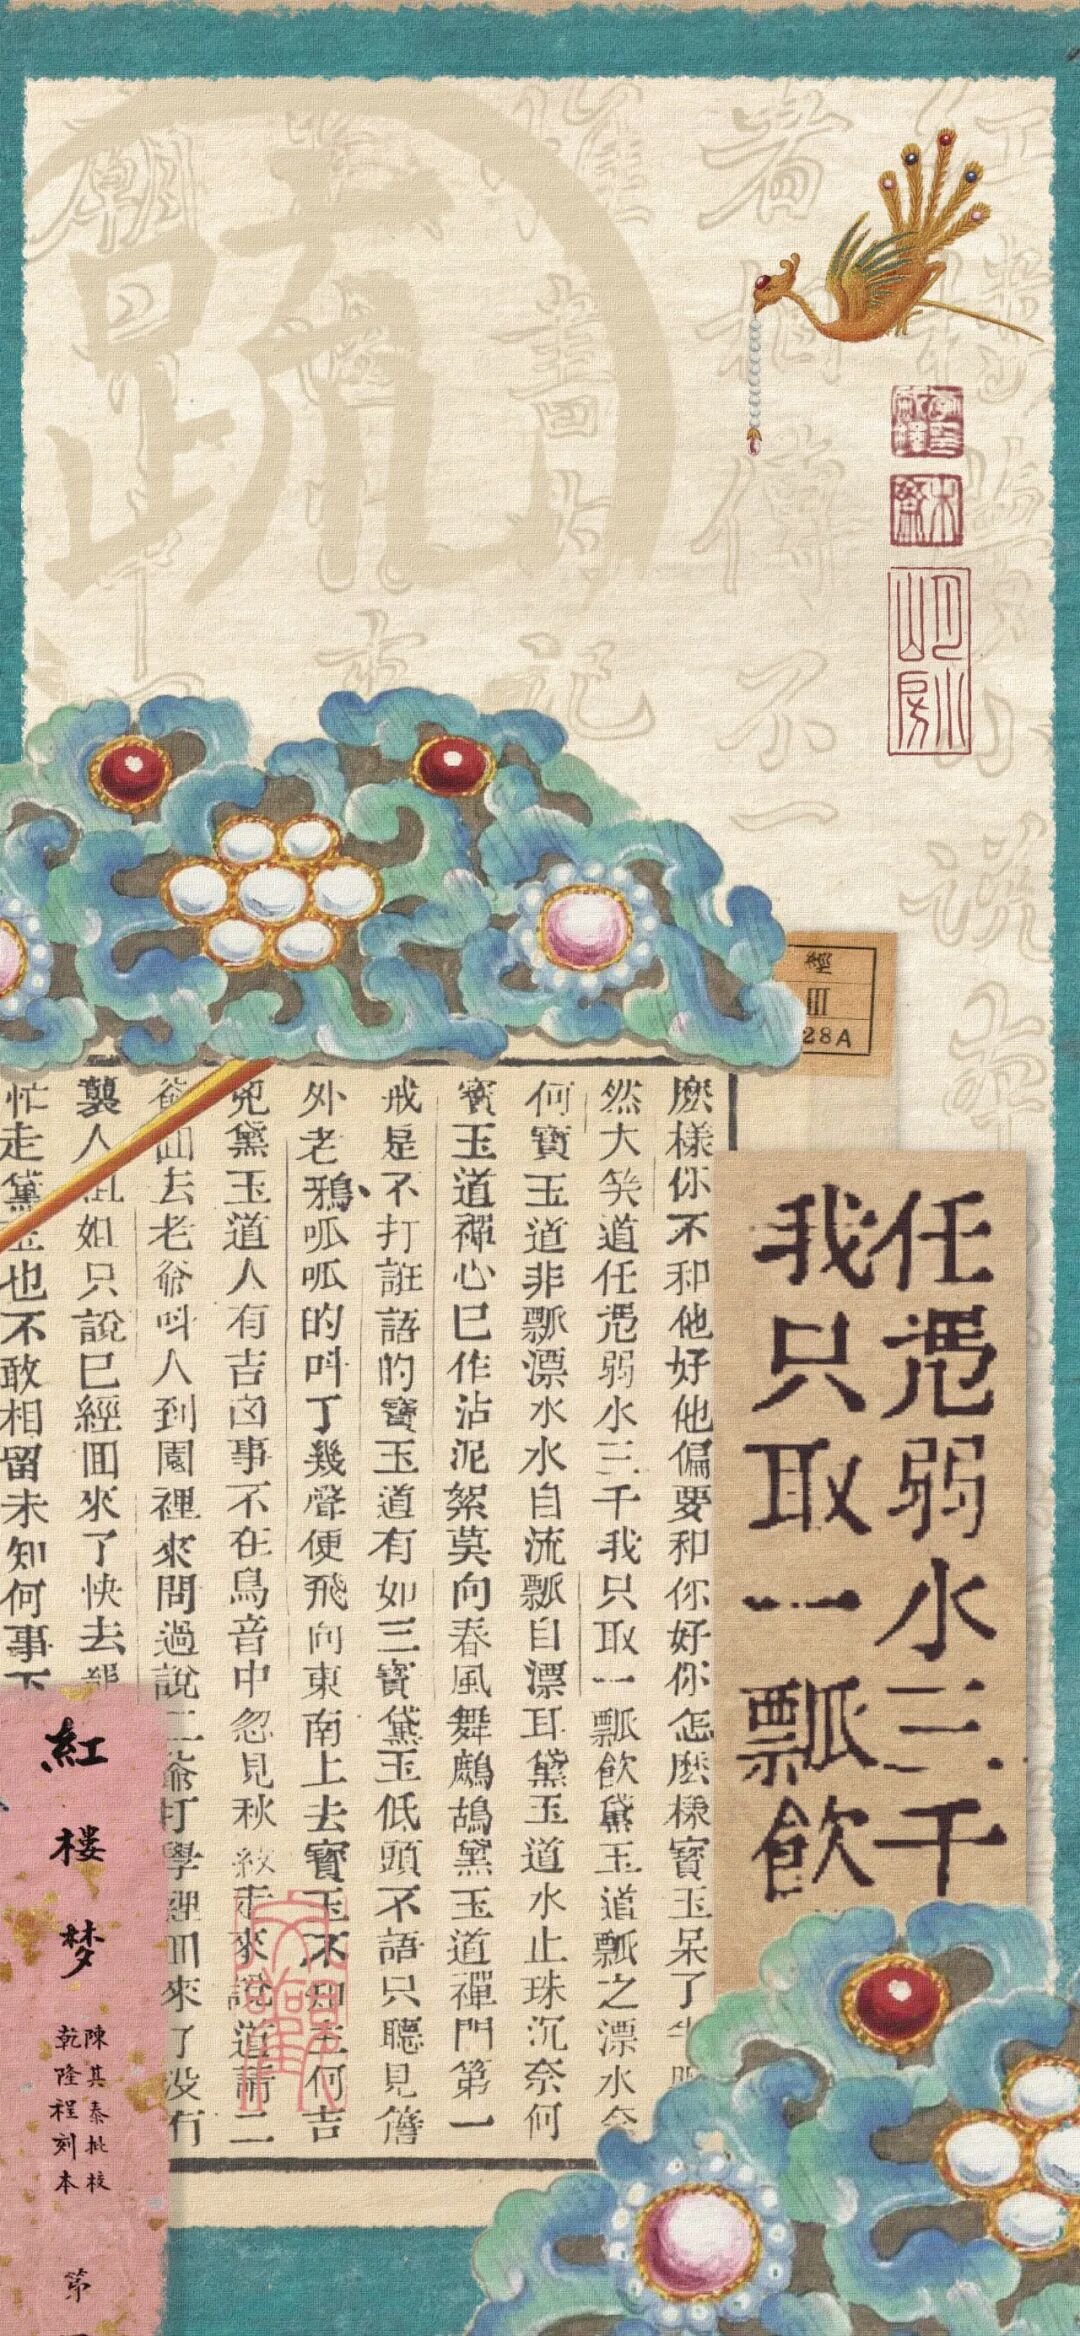 任凴弱水三千
我只取一瓢飲
麽樣你不和他好他偏要和你好你怎麽樣寳玉呆了半
然大笑道任凴弱水三千我只取一瓢飲黛玉道瓢之漂水奈
何寳玉道非瓢漂水水自流瓢自漂耳黛玉道水止珠沉奈何
寳玉道禪心已作沾泥絮莫向春風舞鷓鴣黛玉道禪門第一
戒是不打誑語的寳玉道有如三寳黛玉低頭不語只聽見簷
外老鴉呱呱的呌了幾聲便飛向東南上去寳玉不知主何吉
兇黛玉道人有吉凶事不在鳥音中忽見秋紋走來說道請二
爺回去老爺呌人到園裡來問過說二爺打學裡回來了没有
襲人姐姐只說已經回來了快去罷
忙走黛玉也不敢相留未知何事下
紅楼梦
陳其泰批校
乾隆程刻本
第
III
28A
疏